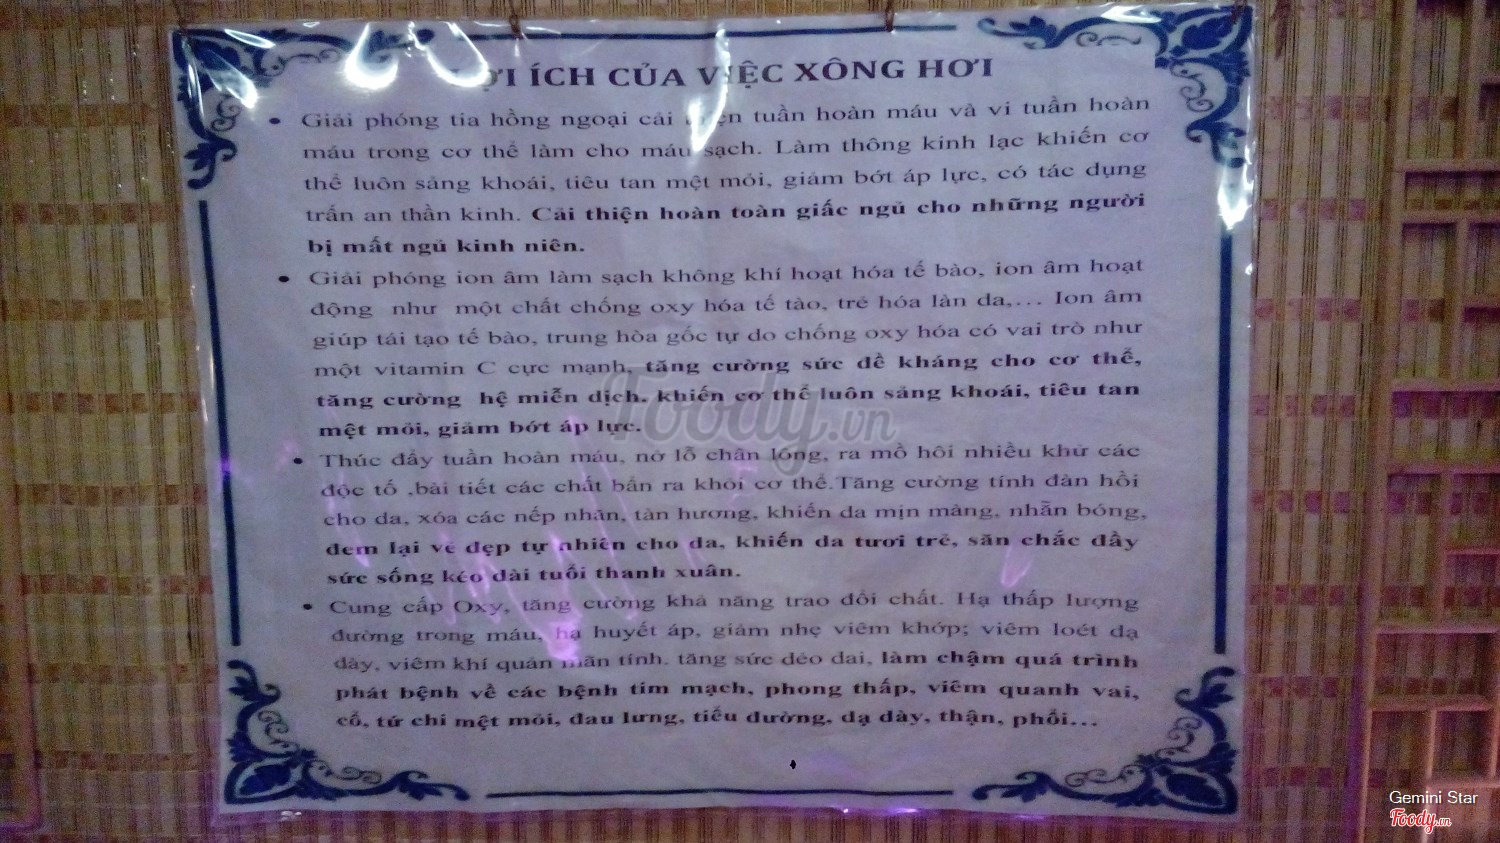 ỢI ÍCH CỦA VIỆC XÔNG HƠI
• Giải phóng tia hồng ngoại cải tuần hoàn máu và vi tuần hoàn
máu trong cơ thể làm cho máu sạch. Làm thông kinh lạc khiến cơ
thể luôn sảng khoái, tiêu tan mệt mỏi, giảm bớt áp lực, có tác dụng
trấn an thần kinh. Cải thiện hoàn toàn giấc ngủ cho những người
bị mất ngủ kinh niên.
• Giải phóng ion âm làm sạch không khí hoạt hóa tế bào, ion âm hoạt
động như một chất chống oxy hóa tế tào, trẻ hóa làn da,... Ion âm
giúp tái tạo tế bào, trung hòa gốc tự do chống oxy hóa có vai trò như
một vitamin C cực mạnh, tăng cường sức đề kháng cho cơ thể,
tăng cường hệ miễn dịch. khiến cơ thể luôn sảng khoái, tiêu tan
mệt mỏi, giảm bớt áp lực.
• Thúc đẩy tuần hoàn máu, nở lỗ chân lông, ra mồ hôi nhiều khử các
độc tố ,bài tiết các chất bẩn ra khỏi cơ thể.Tăng cường tính đàn hồi
cho da, xóa các nếp nhăn, tàn hương, khiến da mịn màng, nhẵn bóng,
đem lại vẻ đẹp tự nhiên cho da, khiến da tươi trẻ, săn chắc đầy
sức sống kéo dài tuổi thanh xuân.
• Cung cấp Oxy, tăng cường khả năng trao đổi chất. Hạ thấp lượng
đường trong máu, hạ huyết áp, giảm nhẹ viêm khớp; viêm loét dạ
dày, viêm khí quản mãn tính. tăng sức dẻo dai, làm chậm quá trình
phát bệnh về các bệnh tim mạch, phong thấp, viêm quanh vai,
cổ, tứ chi mệt mỏi, đau lưng, tiểu đường, dạ dày, thận, phổi...
Foody.vn
Gemini Star
Foody.vn